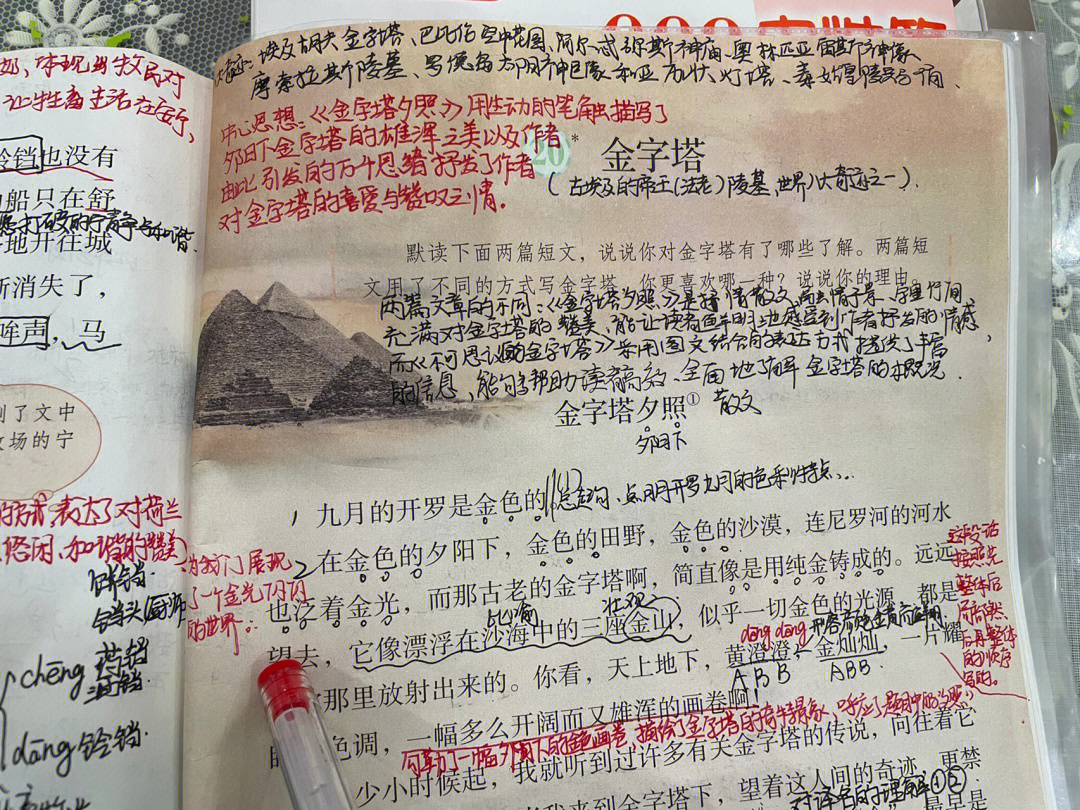 埃及胡夫金字塔、巴比伦空中花园、阿尔忒弥斯神庙、奥林匹亚宙斯神像
摩索拉斯陵墓、罗德岛太阳神巨像和亚历山大灯塔
中心思想:《金字塔夕照》用生动的笔触描写了
夕阳下金字塔的雄浑之美以及作者
由此引发的万千思绪,抒发了作者
对金字塔的喜爱与赞叹之情。
20*
金字塔
(古埃及的帝王(法老)陵墓,世界八大奇迹之一).
默读下面两篇短文,说说你对金字塔有了哪些了解。两篇短
文用了不同的方式写金字塔,你更喜欢哪一种?说说你的理由。
两篇文章的不同:《金字塔夕照》是抒情散文,字里行间
充满对金字塔的赞美,能让读者鲜明地感受到作者抒发的情感,
而《不可思议的金字塔》采用图文结合的表达方式提供了丰富
的信息,能够帮助读者高效、全面地了解金字塔的概况.
金字塔夕照①
散文
夕阳下
1 九月的开罗是金色的。
(总起句,点明开罗九月的色彩特点.
2 在金色的夕阳下,金色的田野,金色的沙漠,连尼罗河的河水
也泛着金光,而那古老的金字塔啊,简直像是用纯金铸成的。远远
比喻
壮观
望去,它像漂浮在沙海中的三座金山,似乎一切金色的光源,都是
dāng dāng
那里放射出来的。你看,天上地下,黄澄澄,金灿灿,一片耀
ABB
ABB
色调,一幅多么开阔而又雄浑的画卷啊!
勾勒了一幅夕阳下的金色画卷,描绘了金字塔的奇特景象,呼应了题目中的"夕照"
少小时候起,我就听到过许多有关金字塔的传说,向往着它
我来到金字塔下,望着这人间的奇迹,更禁
为我们展现
了一个金光闪闪
的世界。
这段话
按照先
整体后
局部,然
后再整体
的顺序
写的。
体现出牧民对
让牲畜生活在
铃铛也没有
船只在舒
打破的宁静与和谐.
地开往城
渐消失了,
哞声,马
到了文中
牧场的宁
表达了对荷兰
悠闲、和谐的赞美
chēng
dāng 铃铛.